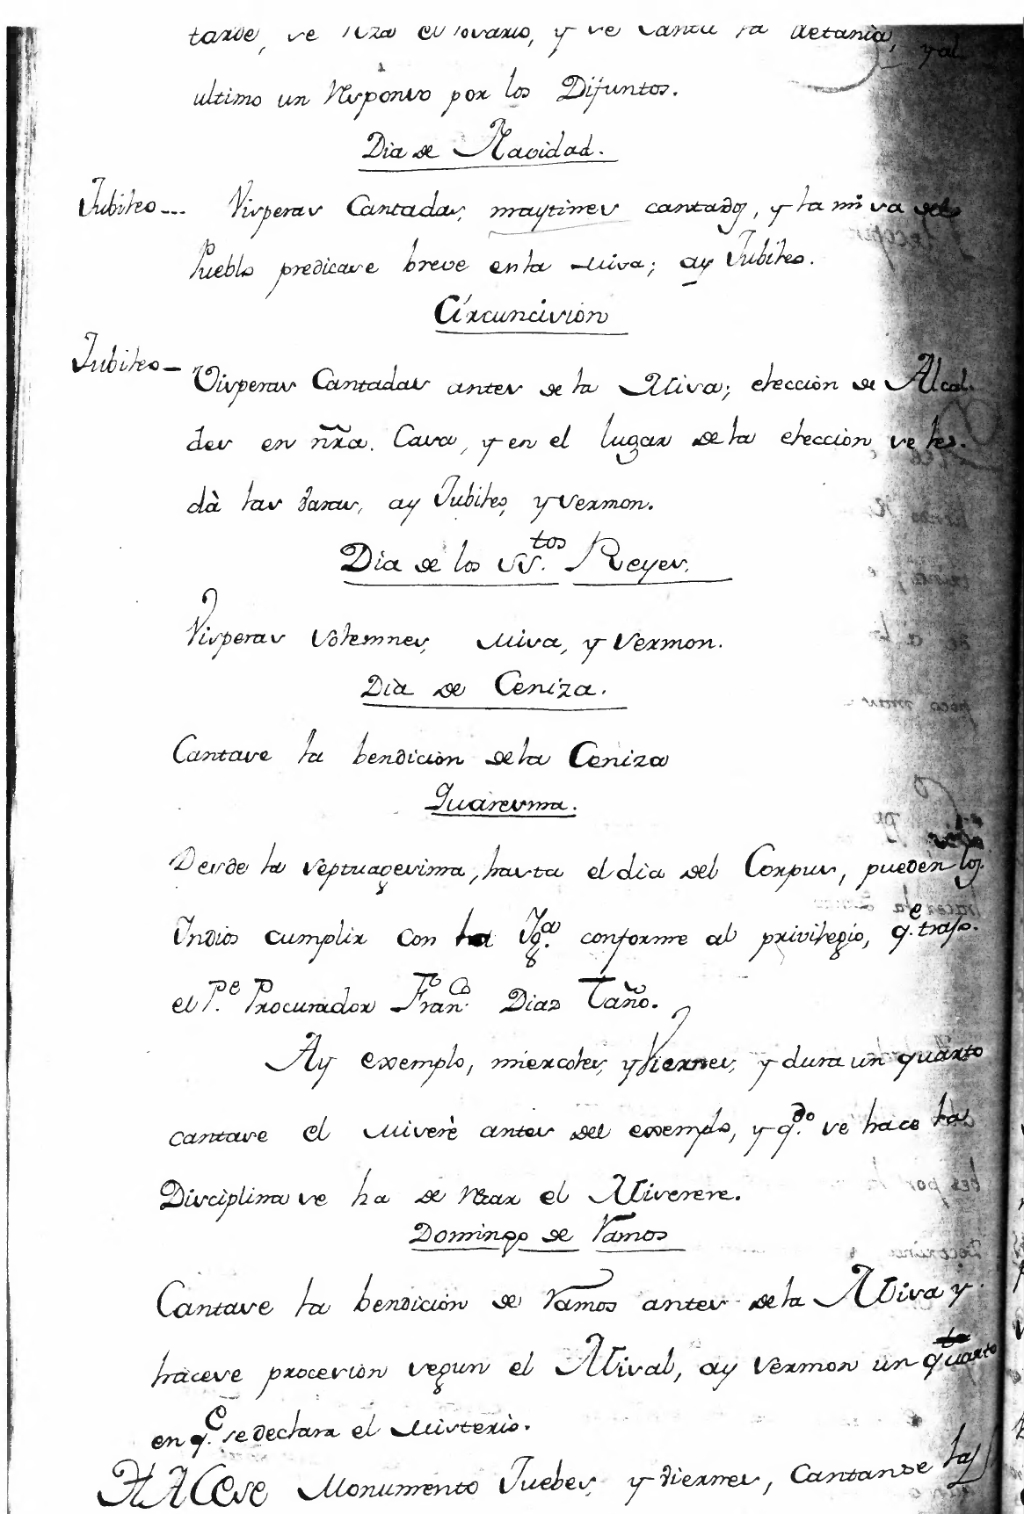 tarde, se reza el rosario, y se canta la Letania, y al
ultimo un Responso por los Difuntos.
Dia de Navidad.
Jubileo--- Visperas Cantadas, maytines cantados, y la misa del
Pueblo predicase breve en la Misa; ay Jubileo.
Circuncision
Jubileo- Visperas Cantadas antes de la Misa; eleccion de Alcal-
des en nr̃a. Casa, y en el lugar de la eleccion se les.
dà las varas, ay Jubileo, y sermon.
Dia de los SS.tos Reyes.
Visperas solemnes, Misa, y sermon.
Dia de Ceniza.
Cantase la bendicion de la Ceniza
Quaresma.
Desde la septuagesima, hasta el dia del Corpus, pueden los
Indios cumplir con la Yg.a conforme al privilegio, q.e trajo.
el P.e Procurador Fran.co Diaz Taño.
Ay exemplo, miercoles, y Viernes, y dura un quarto
cantase el Miserè antes del exemplo, y q.do se hace la
Disciplina se ha de rezar el Miserere.
Domingo de Ramos
Cantase la bendicion de Ramos antes de la Misa y
hacese procesion segun el Misal, ay sermon un quarto
en q.e se declara el Misterio.
HACese Monumento Juebes, y viernes, Cantanse las